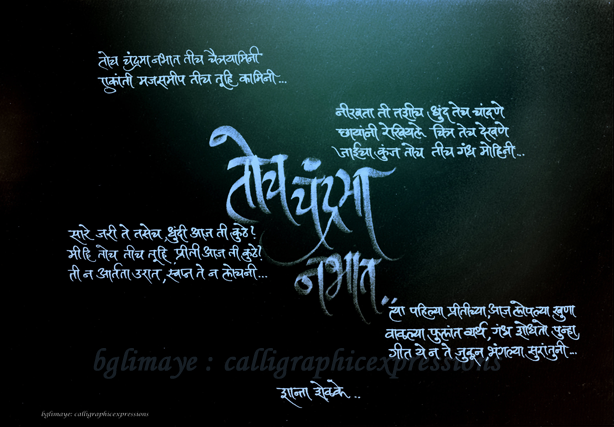 तोच चंद्रमा नभात तीच चैत्रयामिनी
एकांती मजसमीप तीच तूहि कामिनी...
नीरवता ती तशीच धुंद तेच चांदणे
छायांनी रेखियले चित्र तेच देखणे
जाईचा कुंज तोच तीच गंध मोहिनी...
तोच चंद्रमा
नभात..
सारे जरी ते तसेच, धुंदी आज ती कुठे?
मी हि तोच तीच तूहि, प्रीती आज ती कुठे?
ती न आर्तता उरात, स्वप्न ते न लोचनी...
त्या पहिल्या प्रीतीच्या, आज लोपल्या खुणा
वाळल्या फुलांत व्यर्थ, गंध शोधितो पुन्हा
गीत ये न ते जुळून, भंगल्या सुरांतुनी...
bglimaye : calligraphicexpressions
शान्ता शेळके..
bglimaye: calligraphicexpressions